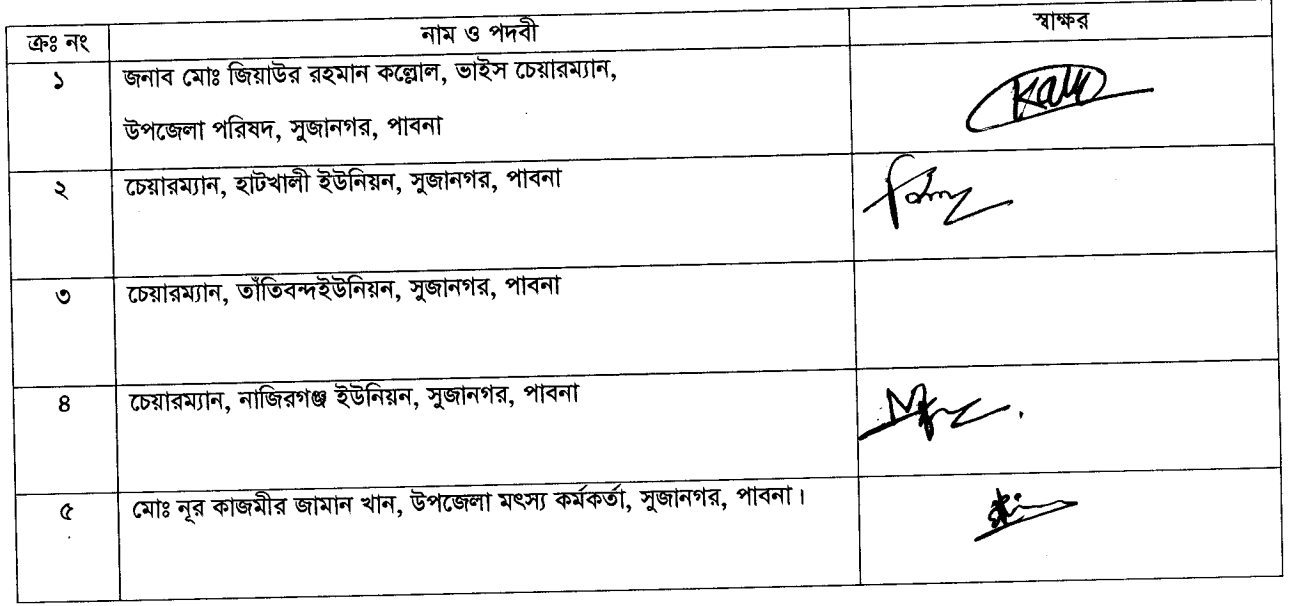 ক্রঃ নং নাম ও পদবী স্বাক্ষর
১ জনাব মোঃ জিয়াউর রহমান কল্লোল, ভাইস চেয়ারম্যান,
উপজেলা পরিষদ, সুজানগর, পাবনা
২ চেয়ারম্যান, হাটখালী ইউনিয়ন, সুজানগর, পাবনা
৩ চেয়ারম্যান, তাঁতিবন্দইউনিয়ন, সুজানগর, পাবনা
৪ চেয়ারম্যান, নাজিরগঞ্জ ইউনিয়ন, সুজানগর, পাবনা
৫ মোঃ নূর কাজমীর জামান খান, উপজেলা মৎস্য কর্মকর্তা, সুজানগর, পাবনা।